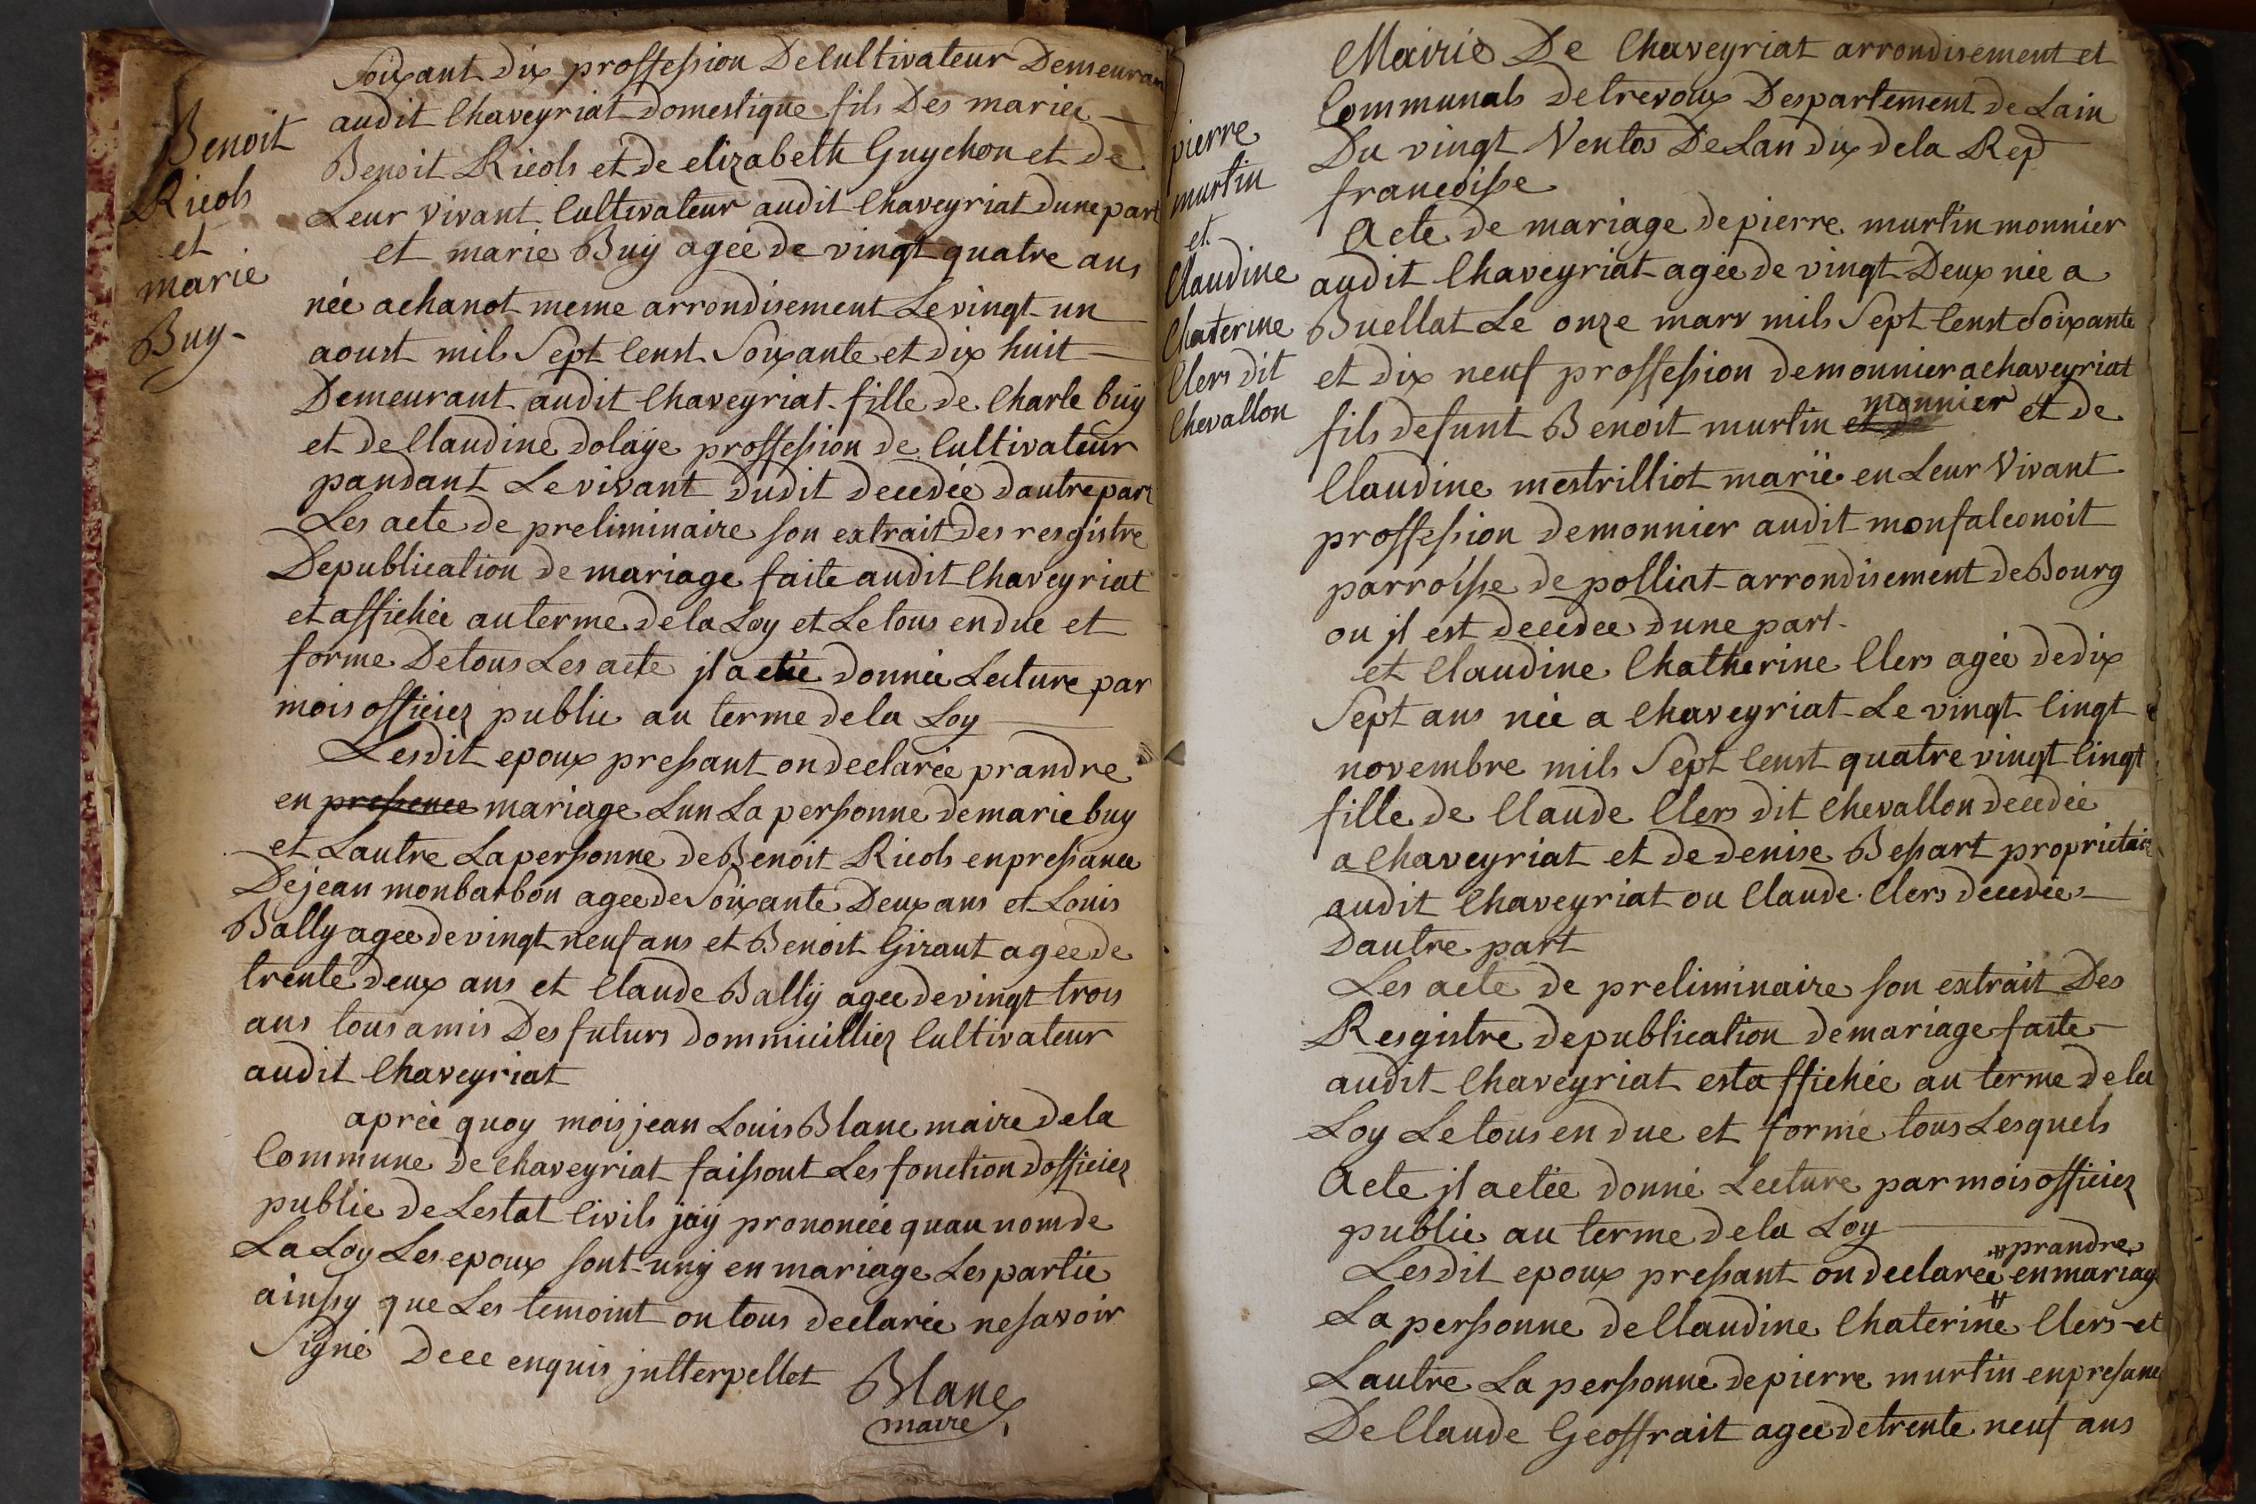 Soixant dix proffession Decultivateur Demeuran
audit Chaveyriat domestique fils Des mariee
Benoit Ricols et de elizabeth Guychon et de
Leur vivant Cultivateur audit Chaveyriat dune part
et marie Buÿ ageé de vingt quatre ans
née achanot meme arrondisement Le vingt un
aoust mils Sept Censt Soixante et dix huit
Demeurant audit Chaveyriat fille de Charle buÿ
et de Claudine dolaÿe proffession de Cultivateur
pandant Le vivant dudit decedée dautre part
Les acte de preliminaire son extrait des resgistre
Depublication de mariage faite audit Chaveyriat
et affichée au terme dela Loy et Le tous en due et
forme De tous Les acte jl a etée donnée Lecture par
mois officiez public au terme dela Loy
Lesdit epoux pressant on declarée prandre
en pressence mariage Lun La personne demarie buy
et Lautre La personne de Benoit Ricols enpressance
De jean monbarbon agee de Soixante Deux ans et Louis
Bally agee de vingt neuf ans et Benoit Giraut agee de
trente deux ans et Claude Ballÿ agee de vingt trois
ans tous amis Des futurs dommicilliez Cultivateur
audit Chaveyriat
aprée quoy mois jean Louis Blanc maire dela
Commune de Chaveyriat faissout Les fonction dofficiez
public de Lestat Civils jaÿ prononcée quau nom de
La Loy Les epoux sont unÿ en mariage Les partie
ainssy que Les temoint on tous declarée ne savoir
Signé Dece enquis jntterpellet
Blanc
maire
Benoit
Ricols
et
marie
Buy
Mairie De Chaveyriat arrondisement et
Communals de trevoux Despartement de Lain
Du vingt Ventos De Lan dix dela Rep
francoisse
Acte de mariage de pierre murtin monnier
audit Chaveyriat agée de vingt Deux née a
Buellat Le onze mars mils Sept Censt Soixante
et dix neuf proffession demonnier a chaveyriat
fils defunt Benoit murtin et de monnier et de
Claudine mestrilliot marië en Leur Vivant
proffession demonnier audit monfalconoit
parroisse de polliat arrondisement de Bourg
ou jl est decedee dune part
et Claudine Chatherine Clers agée de dix
Sept ans née a Chaveyriat Le vingt Cinqt
novembre mils Sept Censt quatre vingt Cinqt
fille de Claude Clers dit Chevallon decedée
a Chaveyriat et de denise Bessart proprietair
audit Chaveyriat ou Claude Clers decedée
Dautre part
Les acte de preliminaire son extrait Des
Resgistre depublication demariage faite
audit Chaveyriat est affichée au terme dela
Loy Le tous en due et forme tous Lesquels
Acte jl a etée donné Lecture par mois officiez
public au terme dela Loy
Lesdit epoux pressant on declaree # prandre en mariage
La personne de Claudine Chaterine Clers et
Lautre La personne de pierre murtin en presance
De Claude Geoffrait agee de trente neuf ans
pierre
murtin
et
Claudine
Chaterine
Clers dit
Chevallon